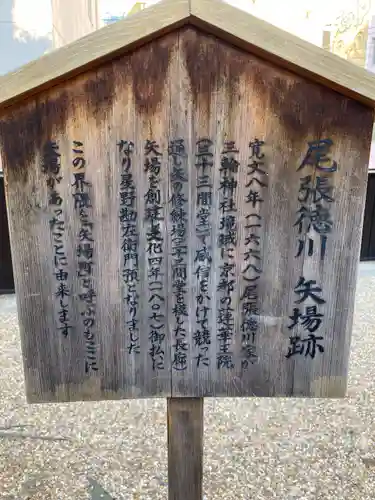 尾張徳川矢場跡
寛文八年(一六六八)尾張徳川家が
三輪神社境域に京都の蓮華王院
(三十三間堂)で威信をかけて競った
通し矢の修練場(三十三間堂を模した長廊)
矢場を創建文化四年(一八〇七)御払に
なり星野勘左衛門預となりました
この界隈を矢場町と呼ぶのもここに
矢場があったことに由来します